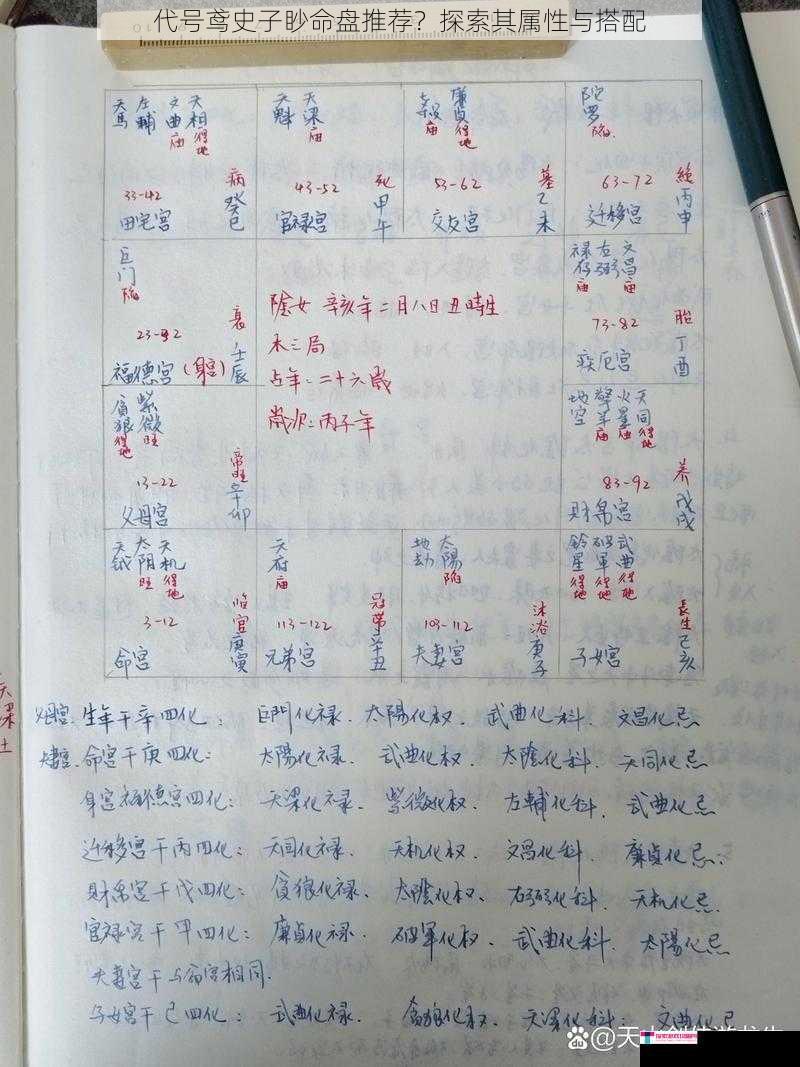 代号鸢史子眇命盘推荐？探索其属性与搭配
天馬 左輔 文曲庙 天相得地
33-42 病 癸巳
田宅宫
天魁 天梁庙
43-52 死 甲午
官禄宫
廉貞得地
53-62 墓 乙未
交友宫
陀罗陷
63-72 絶 丙申
迁移宫
巨门陷
23-32 衰 壬辰
福德宫(身宫)
陰女 辛亥年二月八日丑時生
木三局
占年:二十六歲
歲次:丙子年
禄存庙 右弼 文昌庙
73-82 胎 丁酉
疾厄宫
貪狼得地 紫微旺
13-22 帝旺 辛卯
父母宫
地空 擎羊庙 火星庙 天同得地
83-92 养 戊戌
財帛宫
天鉞 太阴旺 天机得地
3-12 临官 庚寅
命宫
天府庙
113-122 冠带 辛丑
兄弟宫
地劫 太陽陷
103-112 沐浴 庚子
夫妻宫
鈴星得地 破軍得地 武曲得地
長生 己亥
子女宫
父母宫. 生年干辛四化: 巨門化禄. 太陽化权. 武曲化科. 文昌化忌
夫妻宫. 命宫干庚四化: 太陽化禄. 武曲化权. 太陰化科. 天同化忌
身宫福德宫四化: 天梁化禄. 紫微化权. 左輔化科. 武曲化忌
迁移宫干丙四化: 天同化禄. 天机化权. 文昌化科. 廉貞化忌.
財帛宫干戊四化: 貪狼化禄. 太陰化权. 右弼化科. 天机化忌.
官禄宫干甲四化: 廉貞化禄. 破軍化权. 武曲化科. 太陽化忌
夫妻宫干与命宫相同.
子女宫干己四化: 武曲化禄. 貪狼化权. 天梁化科. 文曲化忌
天梁土